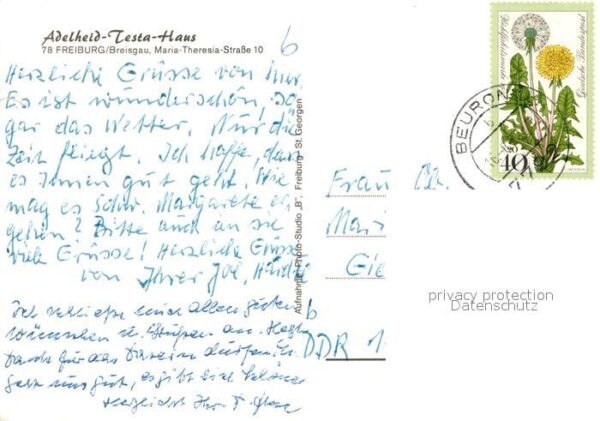 Adelheid-Testa-Haus
78 FREIBURG/Breisgau, Maria-Theresia-Straße 10
6
Herzliche Grüsse von hier.
Es ist wunderschön, so
gar das Wetter. Nur die
Zeit fliegt. Ich hoffe, dass
es Ihnen gut geht. Wie
mag es Schw. Margarete er
gehen? Bitte auch an sie
viele Grüsse! Herzliche Grüsse
von Ihrer
Ich schließe mich allen guten
Wünschen u. Grüßen an.
Dank für das
es gibt eine
Herzlichst Ihre
6
Aufnahme Photo-Studio „B“, Freiburg - St. Georgen
Frau
Mari
Gie
DDR 1
Wohlfahrtsmarke
Deutsche Bundespost
+20
40
BEURON
privacy protection
Datenschutz